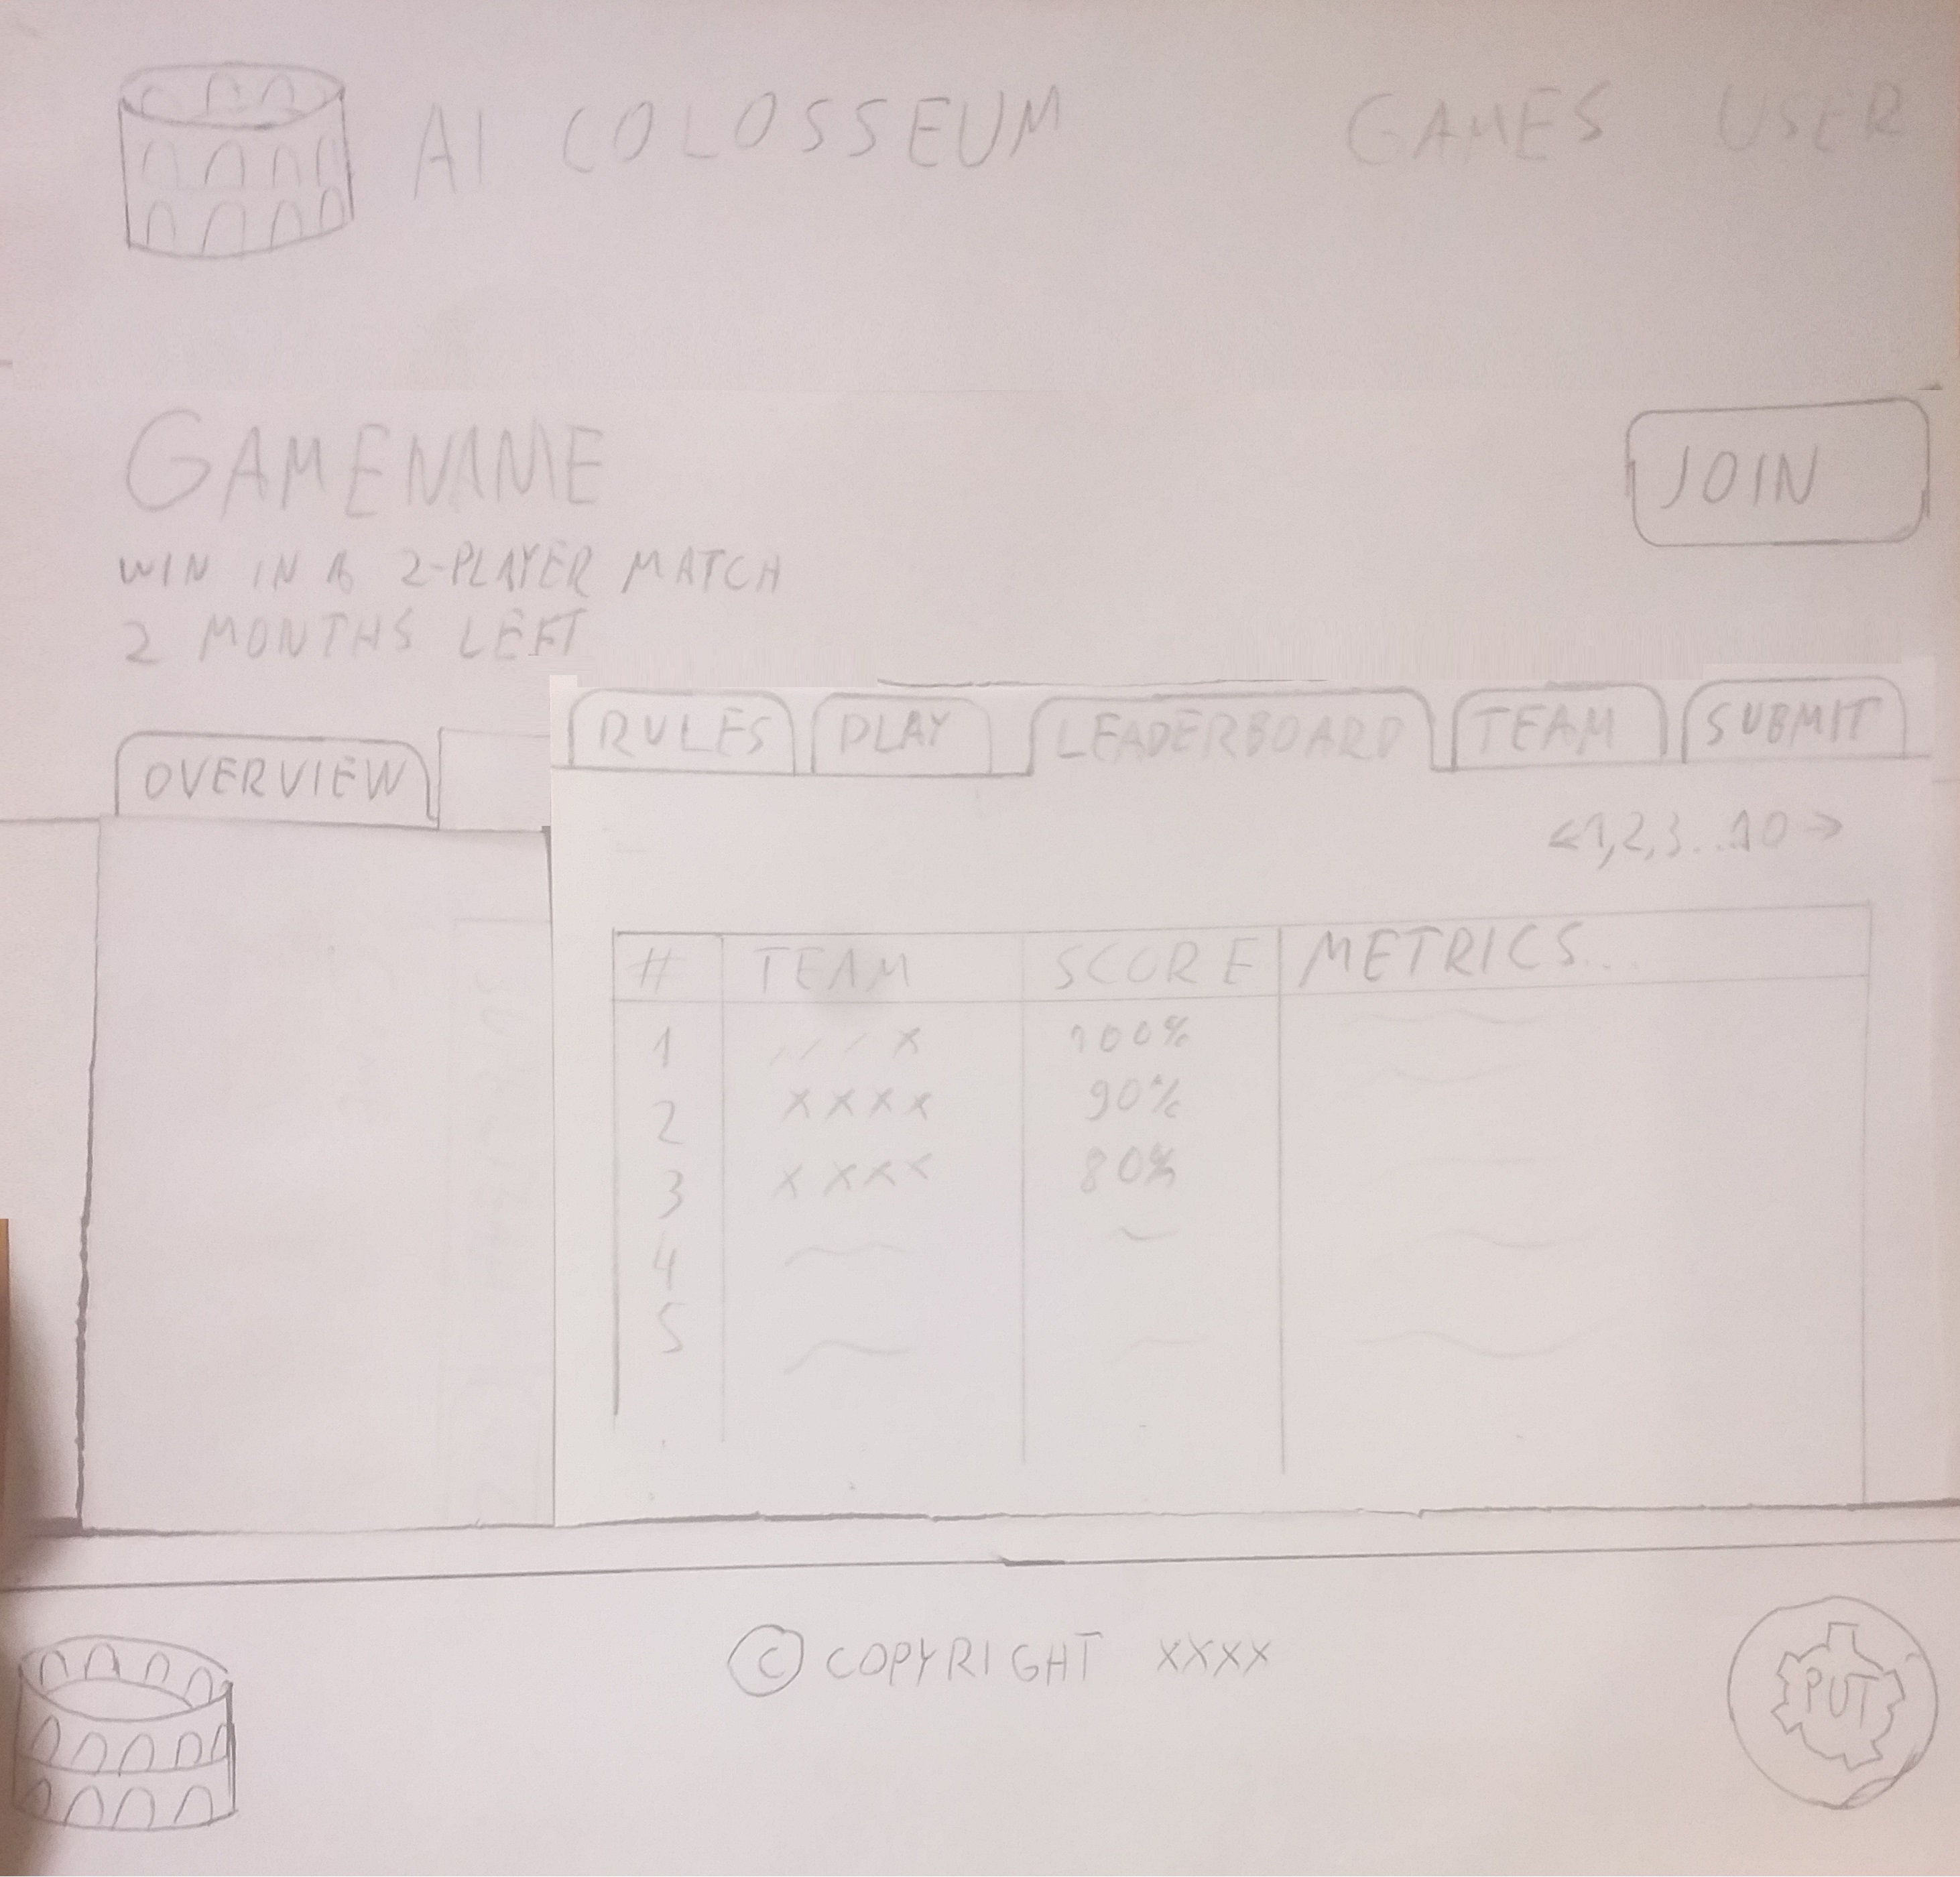 AI COLOSSEUM GAMES USER
GAMENAME
JOIN
WIN IN A 2-PLAYER MATCH
2 MONTHS LEFT
OVERVIEW RULES PLAY LEADERBOARD TEAM SUBMIT
<1,2,3...10>
# TEAM SCORE METRICS...
1 100%
2 xxxx 90%
3 xxxx 80%
4
5
© COPYRIGHT XXXX
PUT